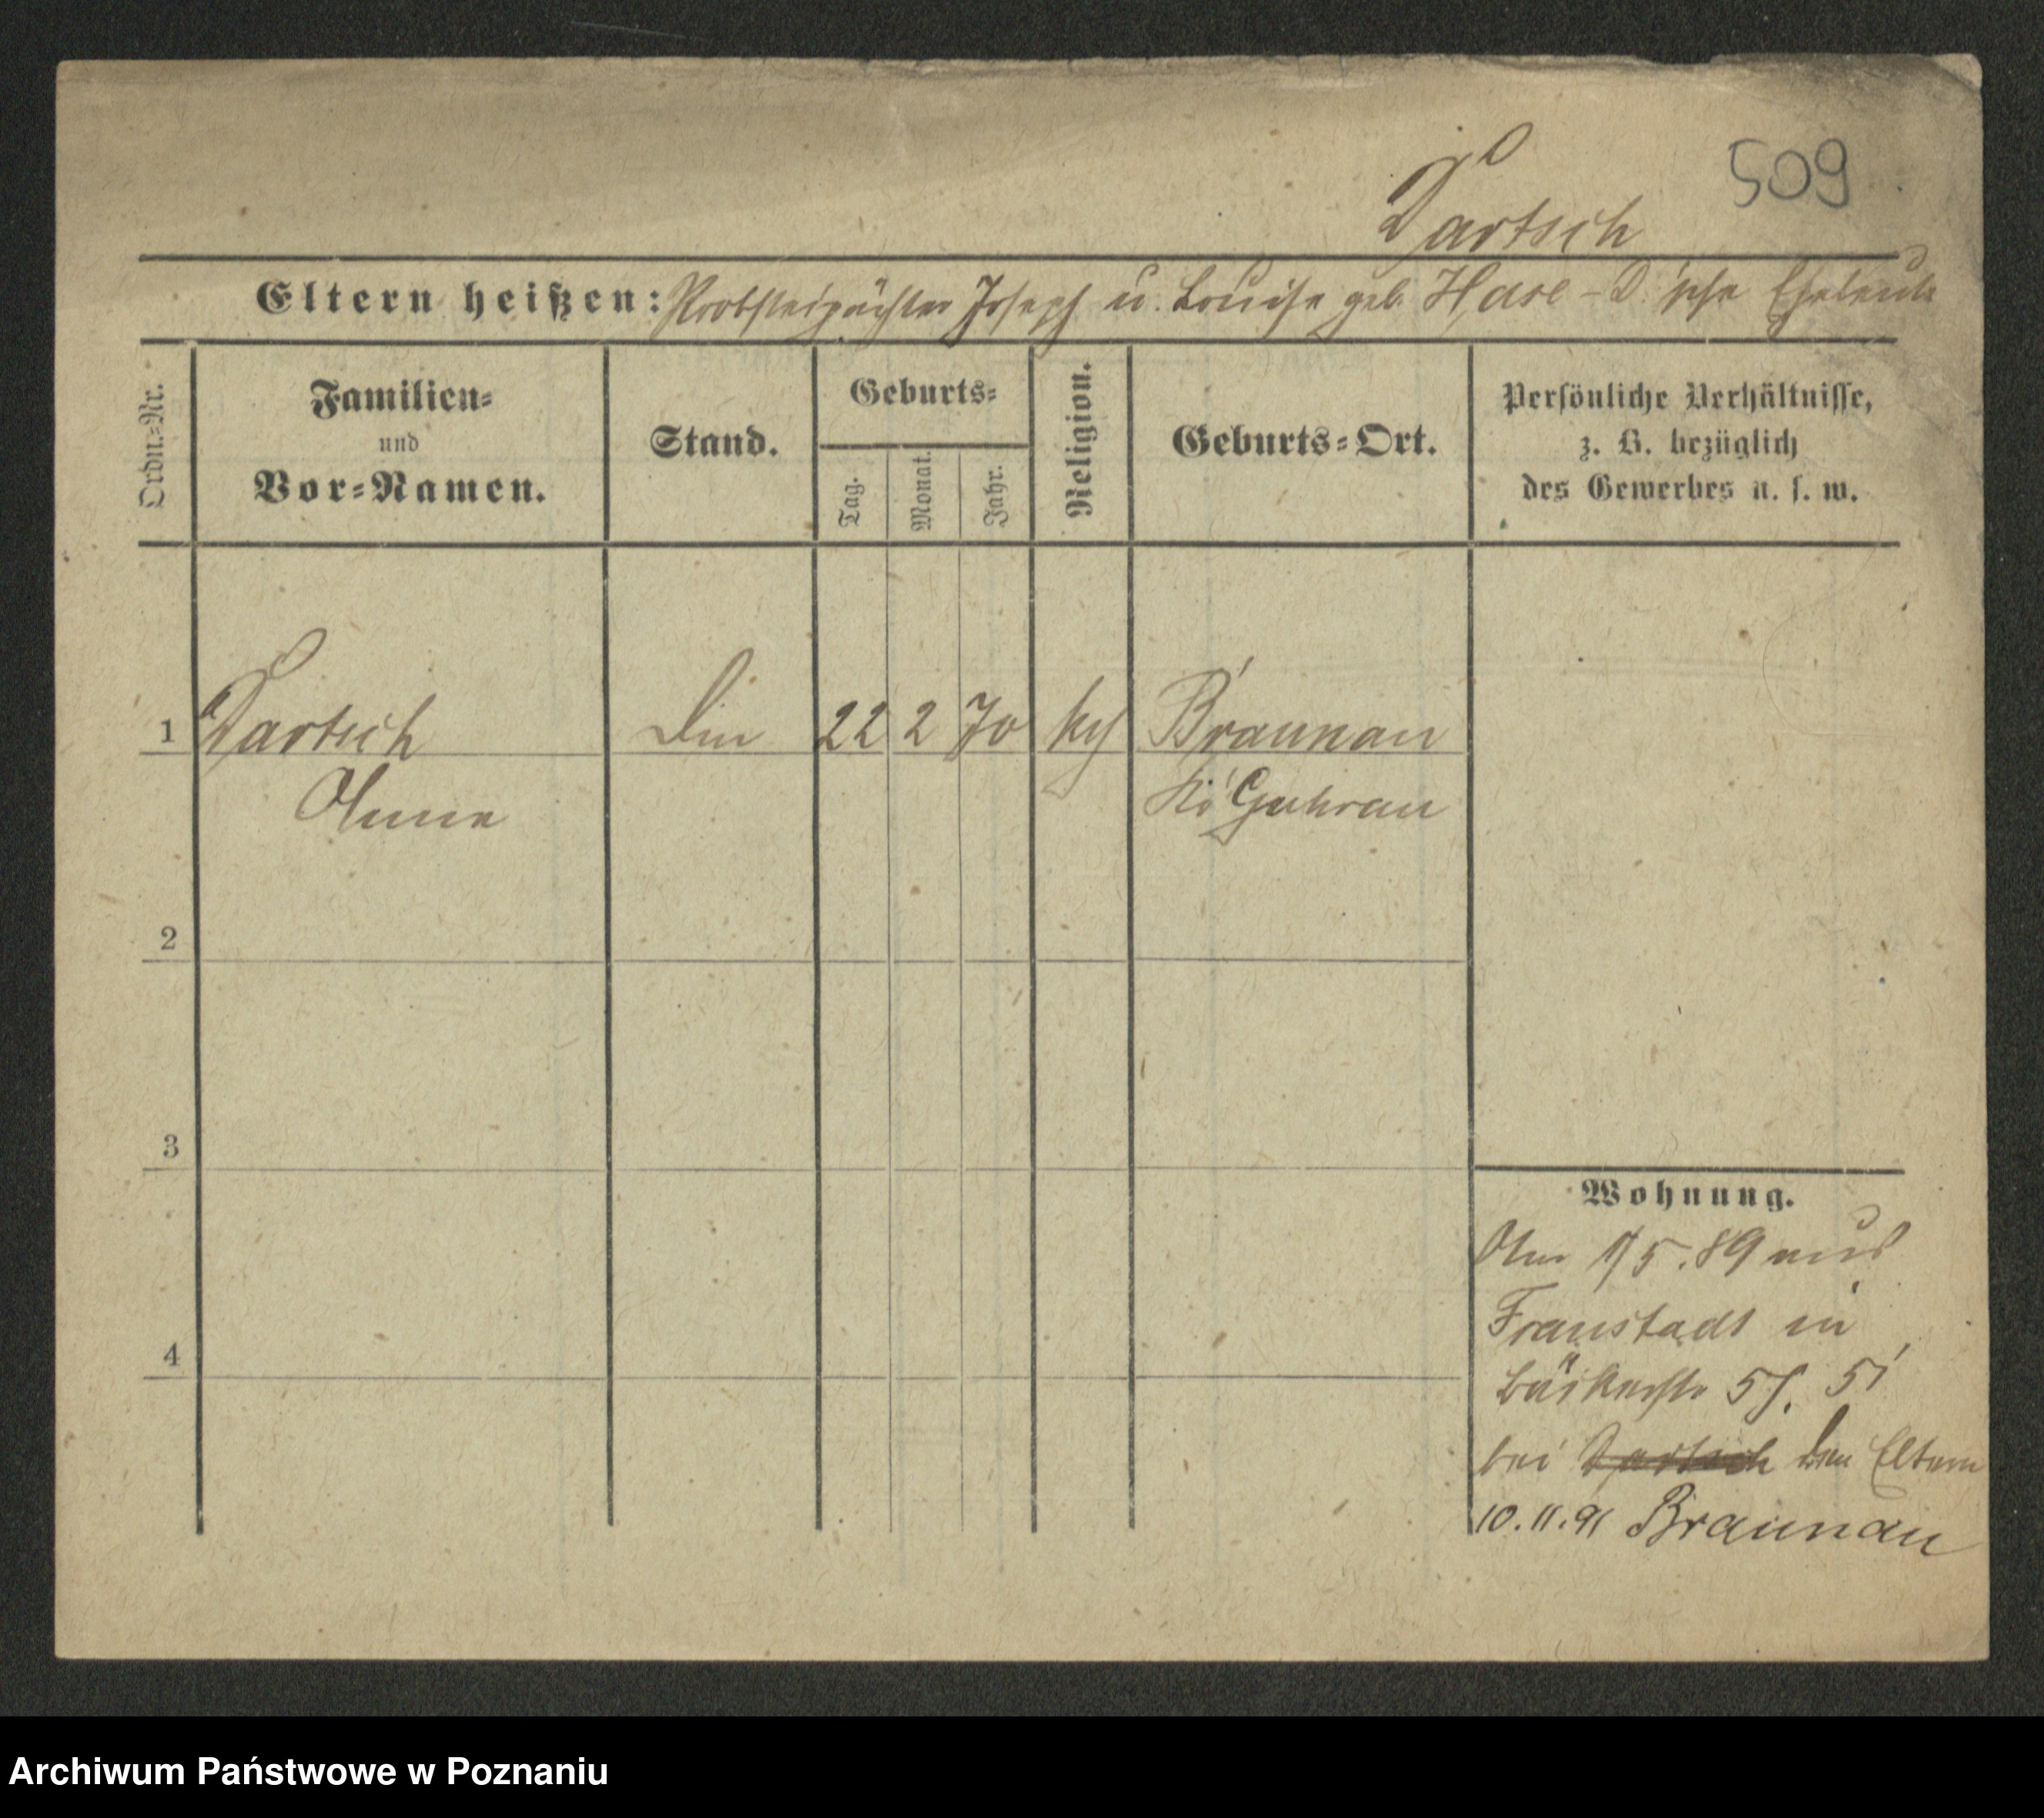 509
Dartsch
Eltern heißen: Probsteipächter Joseph u. Louise geb. Hase - D.'sche Eheleute
Ordn.=Nr.
Familien=
und
Vor=Namen.
Stand.
Geburts=
Tag.
Monat.
Jahr.
Religion.
Geburts=Ort.
Persönliche Verhältnisse,
z. B. bezüglich
des Gewerbes u. s. w.
1 Dartsch 22 2 70 Braunau
Anna Guhrau
2
3
4
Wohnung.
Am 1/5.89 aus
Fraustadt in
Bäckerstr 5
bei Dartsch den Eltern
10.11.91 Braunau
Archiwum Państwowe w Poznaniu